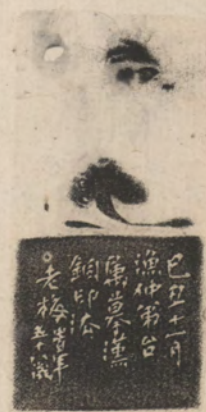 己丑十一月
漁仲弟台
屬摹漢
銅印法
老梅昔年
五十八歲